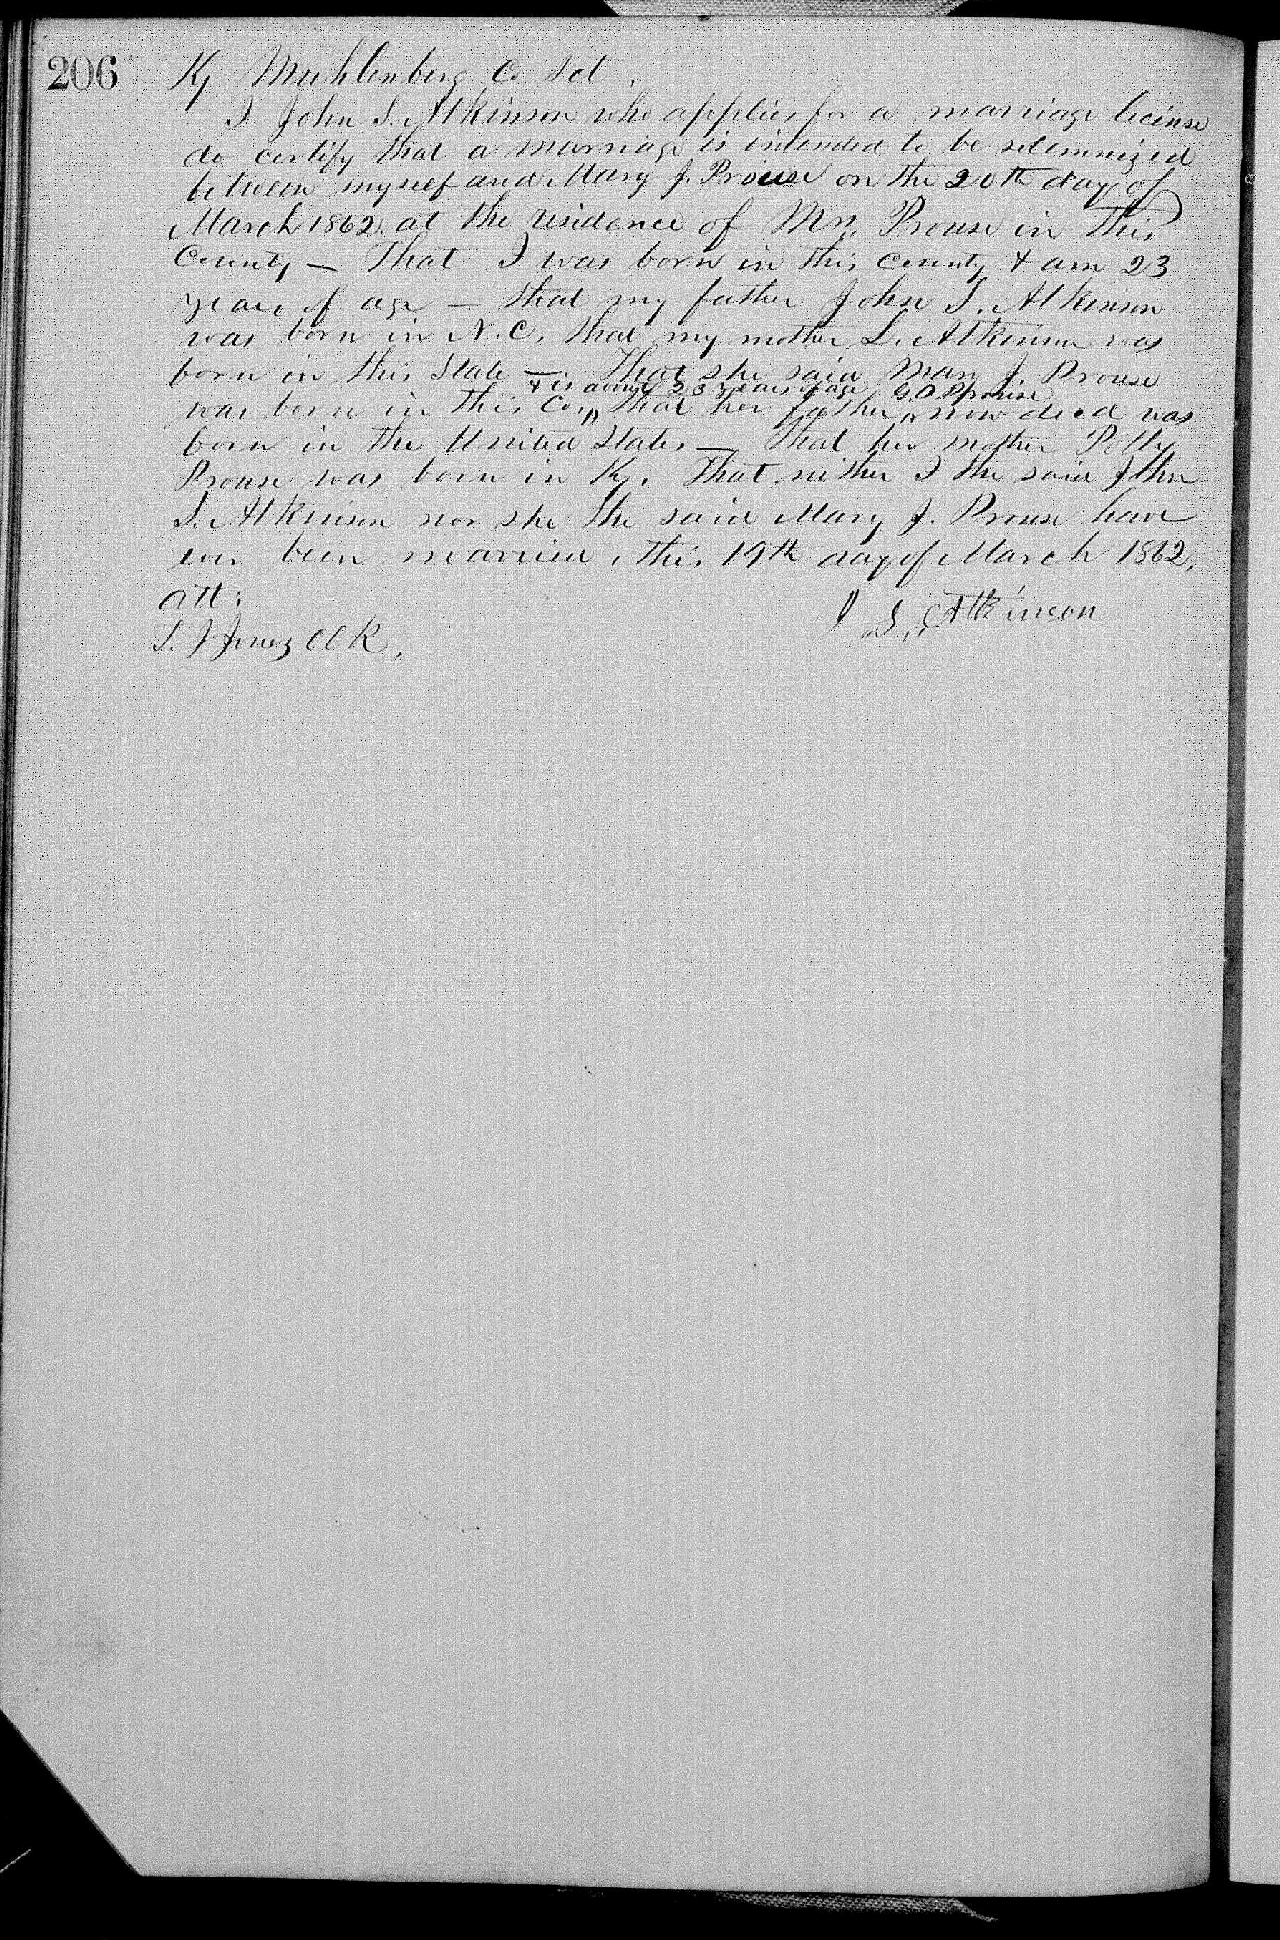 206
Ky Muhlenberg Co Sct.
I John S. Atkinson who applies for a marriage license
do certify that a marriage is intended to be solemnized
between myself and Mary J. Prouse on the 20th day of
March 1862, at the residence of Mrs. Prouse in this
County — That I was born in this county & am 23
years of age — that my father John S. Atkinson
was born in N.C. that my mother L. Atkinson was
born in this State — That she said Mary J. Prouse
& is about 23 years of age
was born in this Co., that her father now dead was
born in the United States — That her mother Polly
Prouse was born in Ky. That neither I the said John
S. Atkinson nor she the said Mary J. Prouse have
ever been married, this 19th day of March 1862,
att:
J S. Atkinson
Clk.